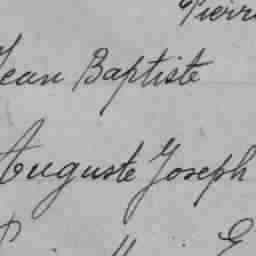 Pierr
Jean Baptiste
Auguste Joseph